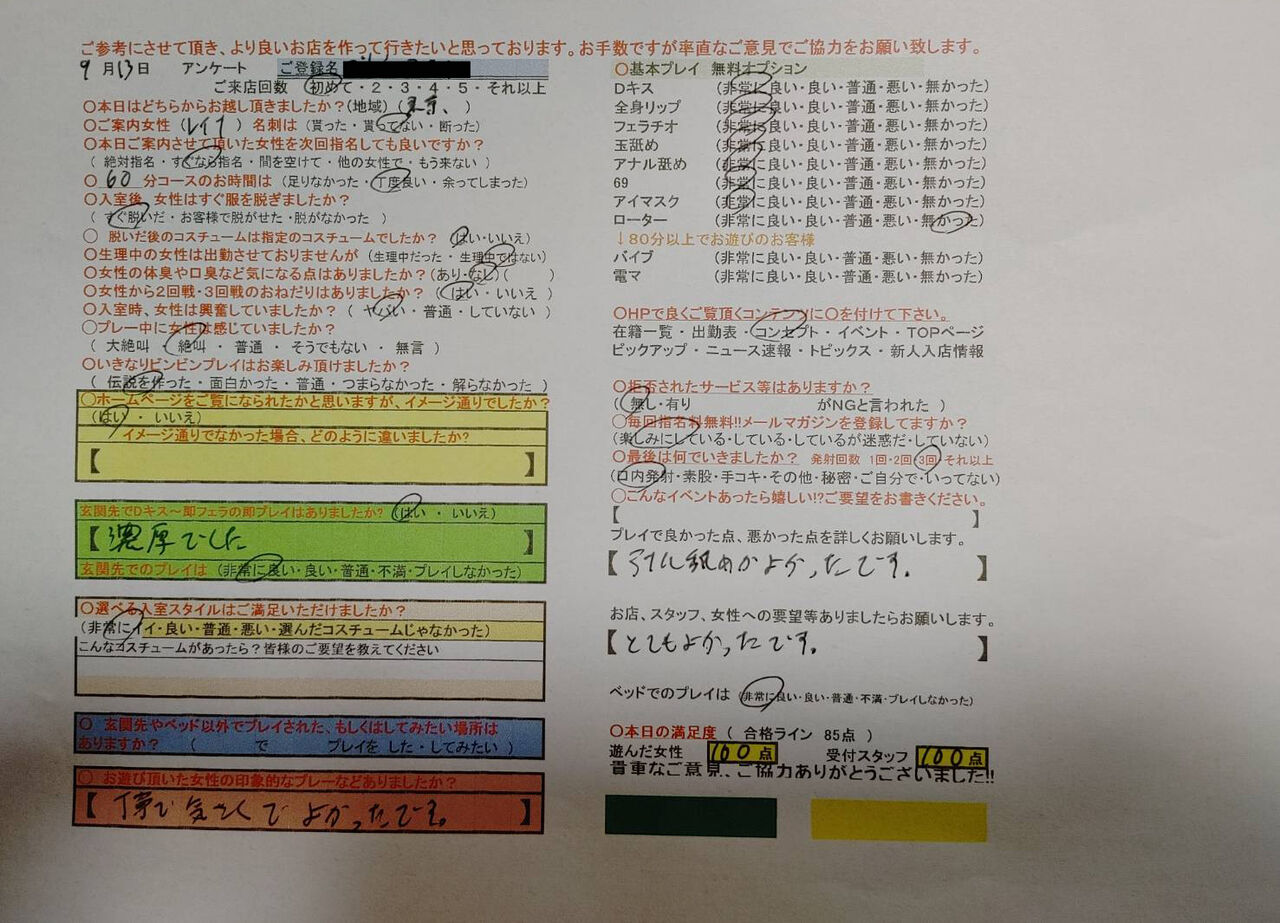 ご参考にさせて頂き、より良いお店を作って行きたいと思っております。お手数ですが率直なご意見でご協力をお願い致します。
9月13日 アンケート ご登録名
ご来店回数 初めて・2・3・4・5・それ以上
〇本日はどちらからお越し頂きましたか?(地域)(東京、)
〇ご案内女性(レイナ)名刺は(貰った・貰ってない・断った)
〇本日ご案内させて頂いた女性を次回指名しても良いですか?
(絶対指名・すぐなら指名・間を空けて・他の女性で・もう来ない)
〇60分コースのお時間は(足りなかった・丁度良い・余ってしまった)
〇入室後、女性はすぐ服を脱ぎましたか?
(すぐ脱いだ・お客様で脱がせた・脱がなかった)
〇 脱いだ後のコスチュームは指定のコスチュームでしたか? (はい・いいえ)
〇生理中の女性は出勤させておりませんが (生理中だった・生理中ではない)
〇女性の体臭や口臭など気になる点はありましたか?(あり・なし)( )
〇女性から2回戦・3回戦のおねだりはありましたか? (はい・いいえ)
〇入室時、女性は興奮していましたか? (ヤバい・普通・していない)
〇プレー中に女性は感じていましたか?
(大絶叫・絶叫・普通・そうでもない・無言)
〇いきなりビンビンプレイはお楽しみ頂けましたか?
(伝説を作った・面白かった・普通・つまらなかった・解らなかった)
〇ホームページをご覧になられたかと思いますが、イメージ通りでしたか?
(はい・いいえ)
イメージ通りでなかった場合、どのように違いましたか?
【 】
玄関先でDキス～即フェラの即プレイはありましたか? (はい・いいえ)
【濃厚でした】
玄関先でのプレイは (非常に良い・良い・普通・不満・プレイしなかった)
〇選べる入室スタイルはご満足いただけましたか?
(非常にイイ・良い・普通・悪い・選んだコスチュームじゃなかった)
こんなコスチュームがあったら?皆様のご要望を教えてください
〇 玄関先やベッド以外でプレイされた、もしくはしてみたい場所は
ありますか? ( で プレイを した・してみたい )
〇 お遊び頂いた女性の印象的なプレーなどありましたか?
【丁寧で気さくでよかったです。】
〇基本プレイ 無料オプション
Dキス (非常に良い・良い・普通・悪い・無かった)
全身リップ (非常に良い・良い・普通・悪い・無かった)
フェラチオ (非常に良い・良い・普通・悪い・無かった)
玉舐め (非常に良い・良い・普通・悪い・無かった)
アナル舐め (非常に良い・良い・普通・悪い・無かった)
69 (非常に良い・良い・普通・悪い・無かった)
アイマスク (非常に良い・良い・普通・悪い・無かった)
ローター (非常に良い・良い・普通・悪い・無かった)
↓80分以上でお遊びのお客様
バイブ (非常に良い・良い・普通・悪い・無かった)
電マ (非常に良い・良い・普通・悪い・無かった)
〇HPで良くご覧頂くコンテンツに〇を付けて下さい。
在籍一覧・出勤表・コンセプト・イベント・TOPページ
ピックアップ・ニュース速報・トピックス・新人入店情報
〇拒否されたサービス等はありますか?
(無し・有り がNGと言われた)
〇毎回指名料無料!!メールマガジンを登録してますか?
(楽しみにしている・している・しているが迷惑だ・していない)
〇最後は何でいきましたか? 発射回数 1回・2回・3回・それ以上
(口内発射・素股・手コキ・その他・秘密・ご自分で・いってない)
〇こんなイベントあったら嬉しい!?ご要望をお書きください。
[ ]
プレイで良かった点、悪かった点を詳しくお願いします。
【アナル舐めがよかったです。】
お店、スタッフ、女性への要望等ありましたらお願いします。
【とてもよかったです。】
ベッドでのプレイは (非常に良い・良い・普通・不満・プレイしなかった)
〇本日の満足度 ( 合格ライン 85点 )
遊んだ女性 100点 受付スタッフ 100点
貴重なご意見、ご協力ありがとうございました!!